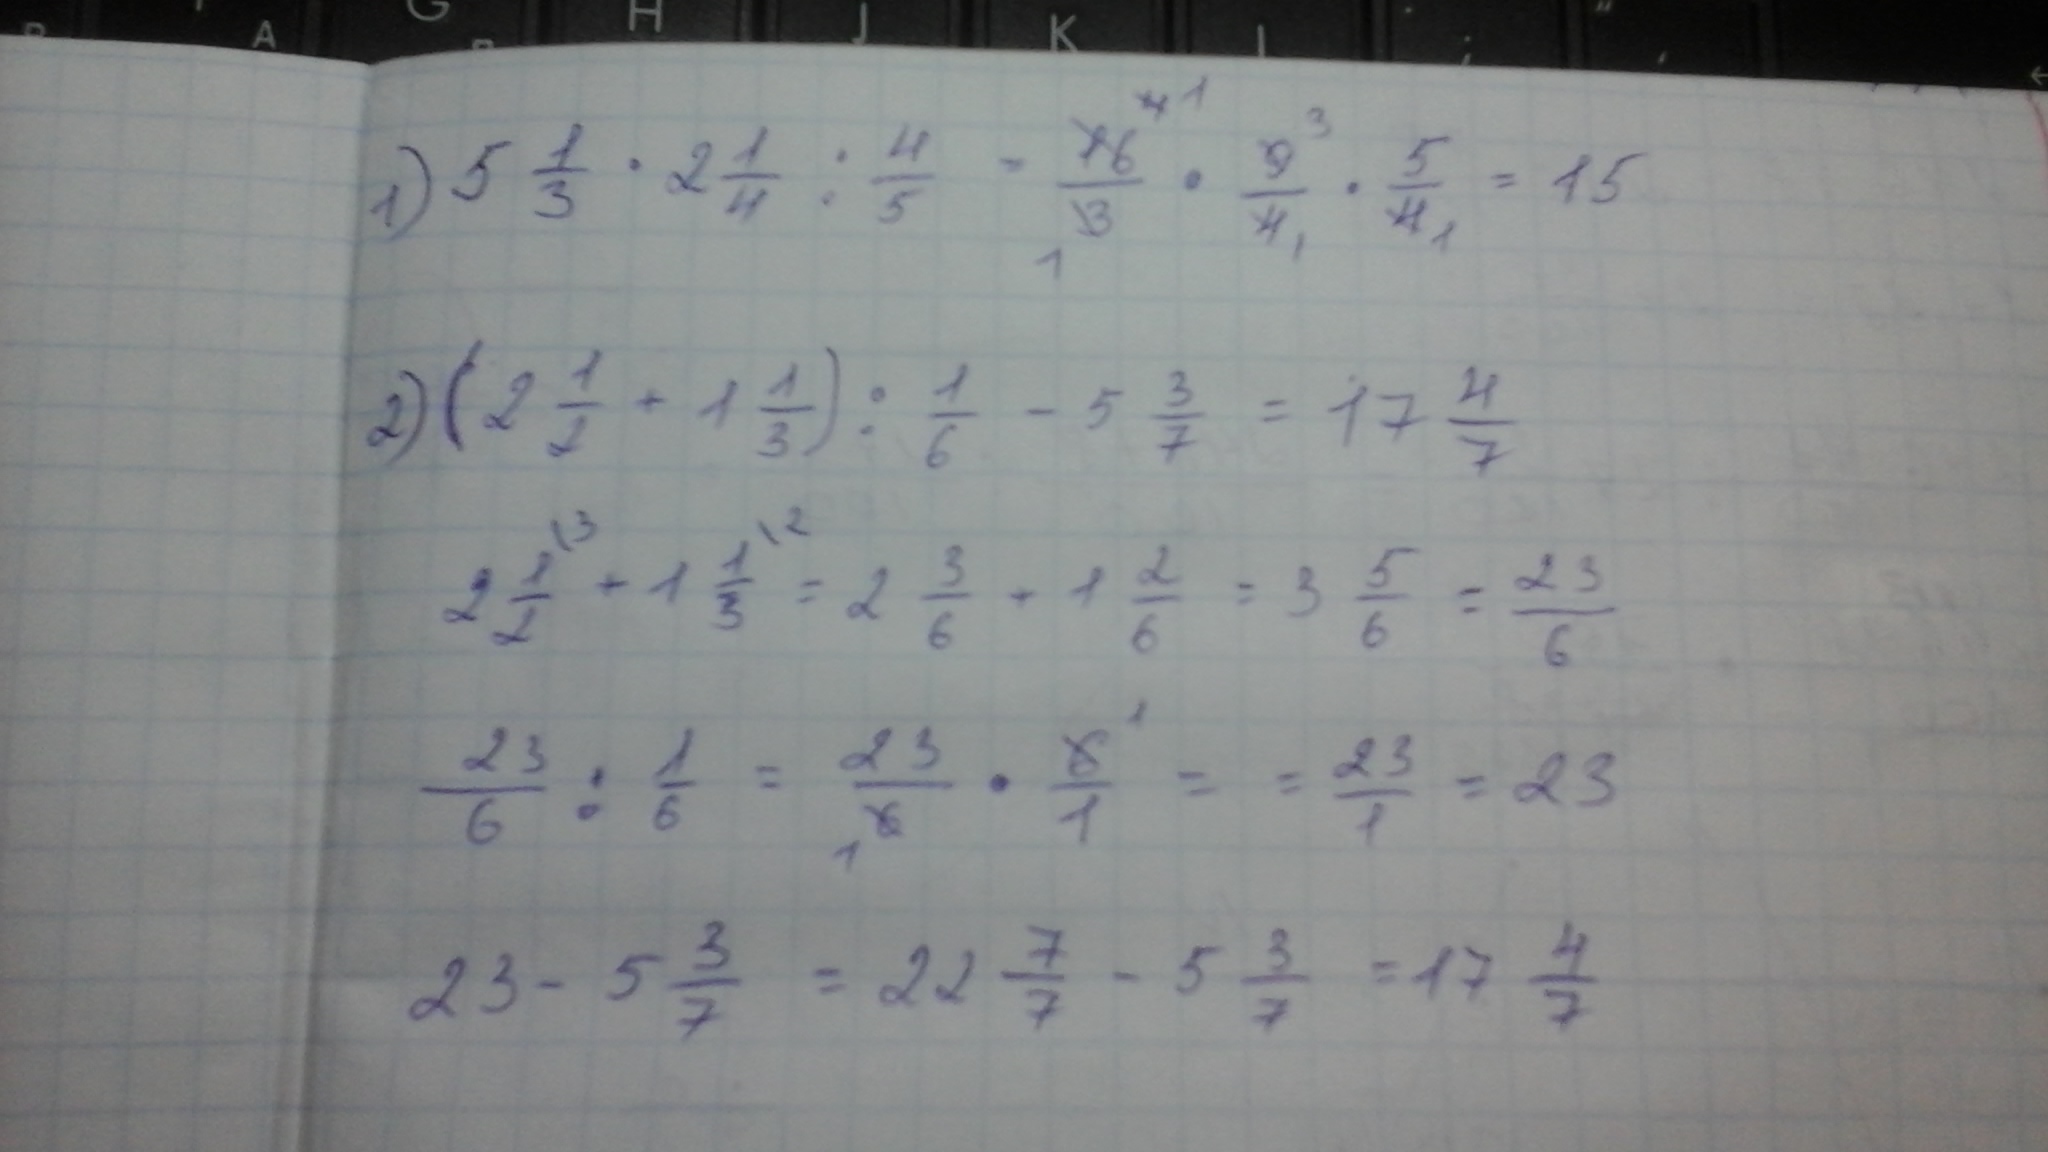 G H J K L
A ; "
1) 5 1/3 · 2 1/4 : 4/5 = 16/3 4 1 1 · 9/4 3 1 · 5/4 1 = 15
2) (2 1/2 + 1 1/3) : 1/6 - 5 3/7 = 17 4/7
2 1/2 \3 + 1 1/3 \2 = 2 3/6 + 1 2/6 = 3 5/6 = 23/6
23/6 : 1/6 = 23/6 1 · 6/1 1 = = 23/1 = 23
23 - 5 3/7 = 22 7/7 - 5 3/7 = 17 4/7